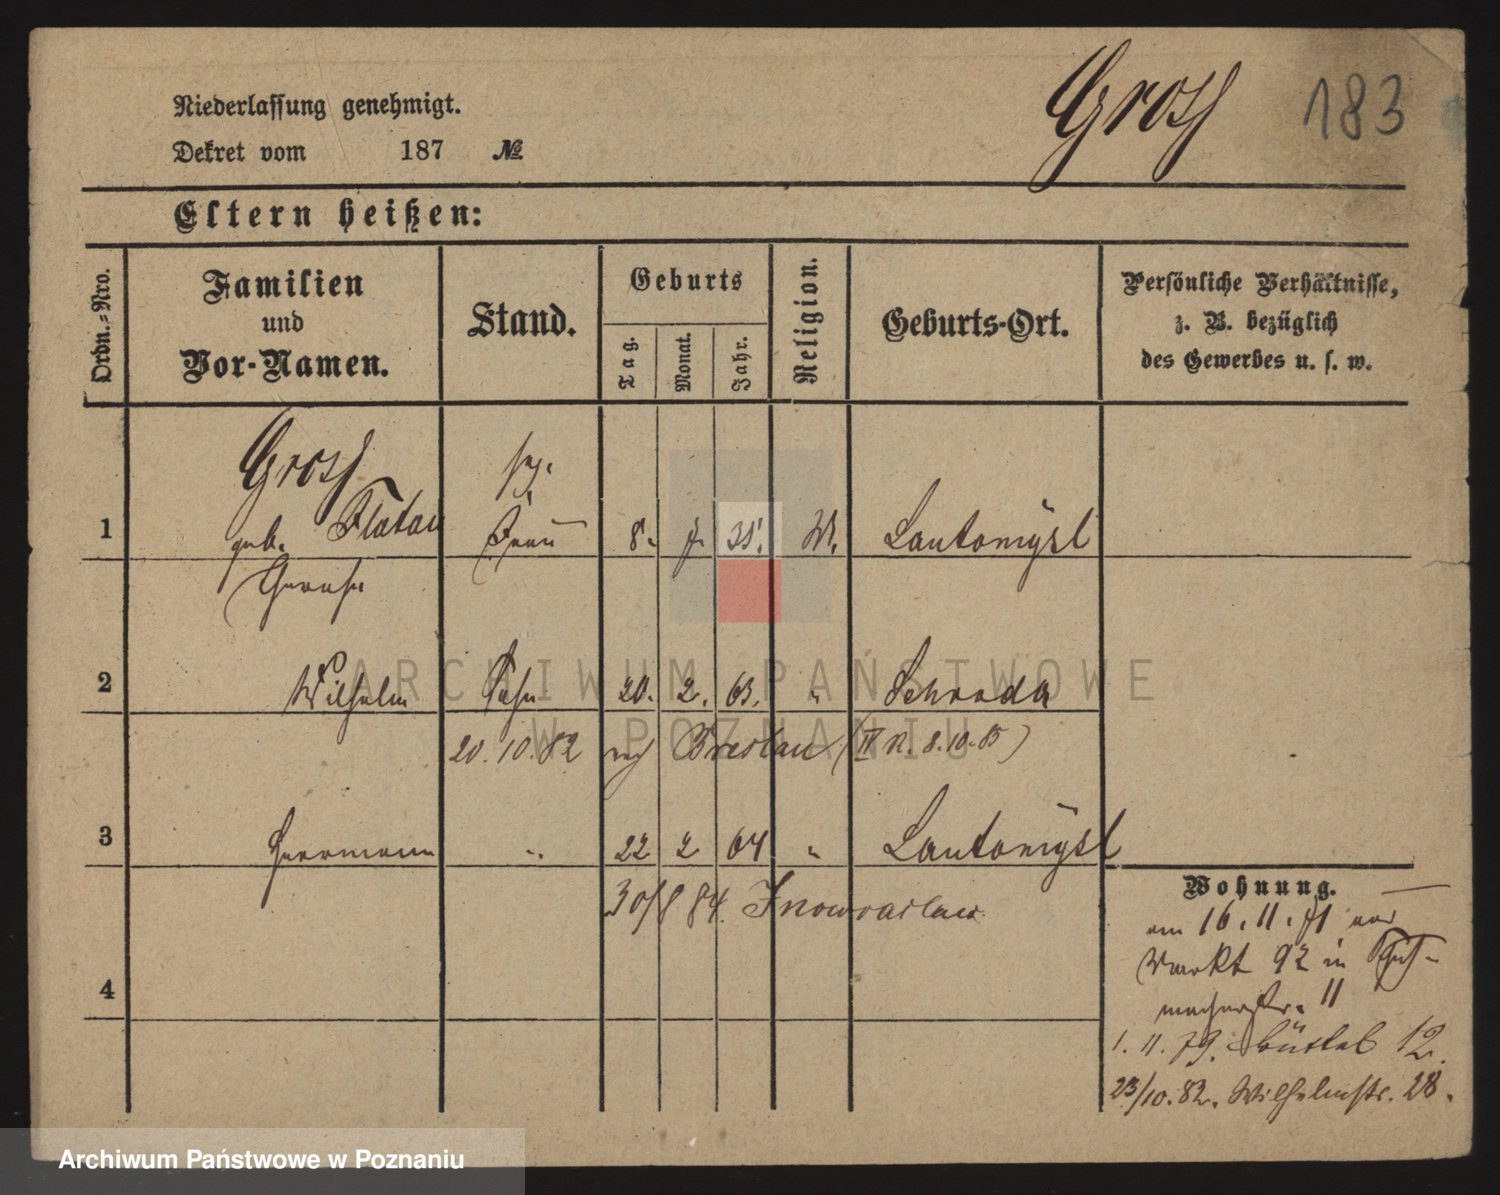 Gross 183
Niederlassung genehmigt.
Dekret vom 187 №
Eltern heißen:
Ordn.-Nro.
Familien und Vor-Namen.
Stand.
Geburts
Tag.
Monat.
Jahr.
Religion.
Geburts-Ort.
Persönliche Verhältnisse,
z. B. bezüglich
des Gewerbes u. s. w.
Gross
1 geb. Flatau Frau 8. 35. M. Lautomÿsl
2 Wilhelm Sohn 20. 2. 63. " Schroda
20.10.82 nach Breslau (II R. 8.10.85)
3 Herrmann " 22 2 64 " Lautomÿsl
30/8 84. Inowraclaw
4
Wohnung.
am 16. 11. 71 von
Markt 92 in Schuh-
macherstr. 11
1. 11. 79. Büttel 12.
23/10. 82. Wilhelmstr. 28.
ARCHIWUM PAŃSTWOWE
W POZNANIU
Archiwum Państwowe w Poznaniu